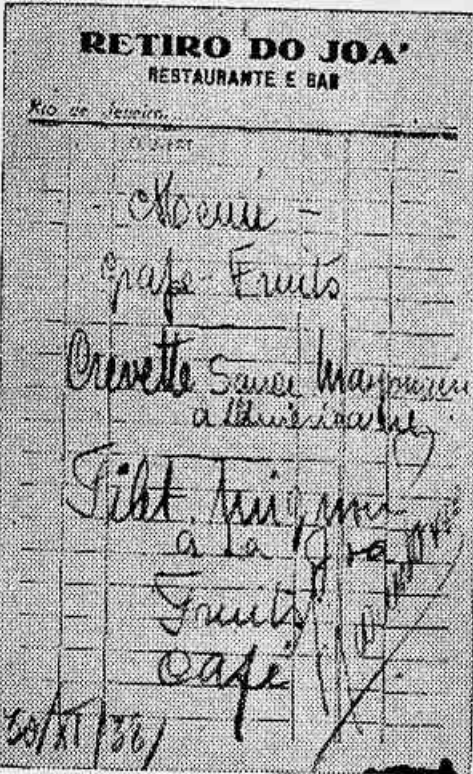 RETIRO DO JOA'
RESTAURANTE E BAR
Rio de Janeiro,
COUVERT
- Menu -
Grape-Fruits
Crevette Sauce Mayonnaise
a
Filet Mignon
a la
Fruits
Café
30/XI/38/